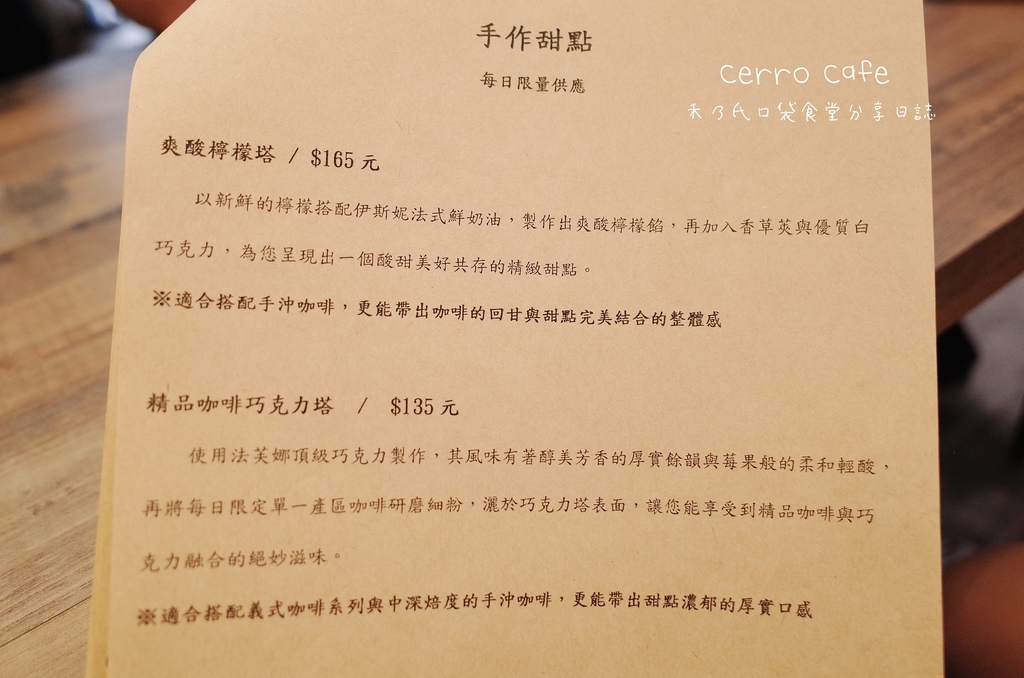 手作甜點
每日限量供應
cerro cafe
禾乃氏口袋食堂分享日誌
爽酸檸檬塔 / $165 元
以新鮮的檸檬搭配伊斯妮法式鮮奶油，製作出爽酸檸檬餡，再加入香草莢與優質白
巧克力，為您呈現出一個酸甜美好共存的精緻甜點。
※適合搭配手沖咖啡，更能帶出咖啡的回甘與甜點完美結合的整體感
精品咖啡巧克力塔 / $135 元
使用法芙娜頂級巧克力製作，其風味有著醇美芳香的厚實餘韻與莓果般的柔和輕酸，
再將每日限定單一產區咖啡研磨細粉，灑於巧克力塔表面，讓您能享受到精品咖啡與巧
克力融合的絕妙滋味。
※適合搭配義式咖啡系列與中深焙度的手沖咖啡，更能帶出甜點濃郁的厚實口感